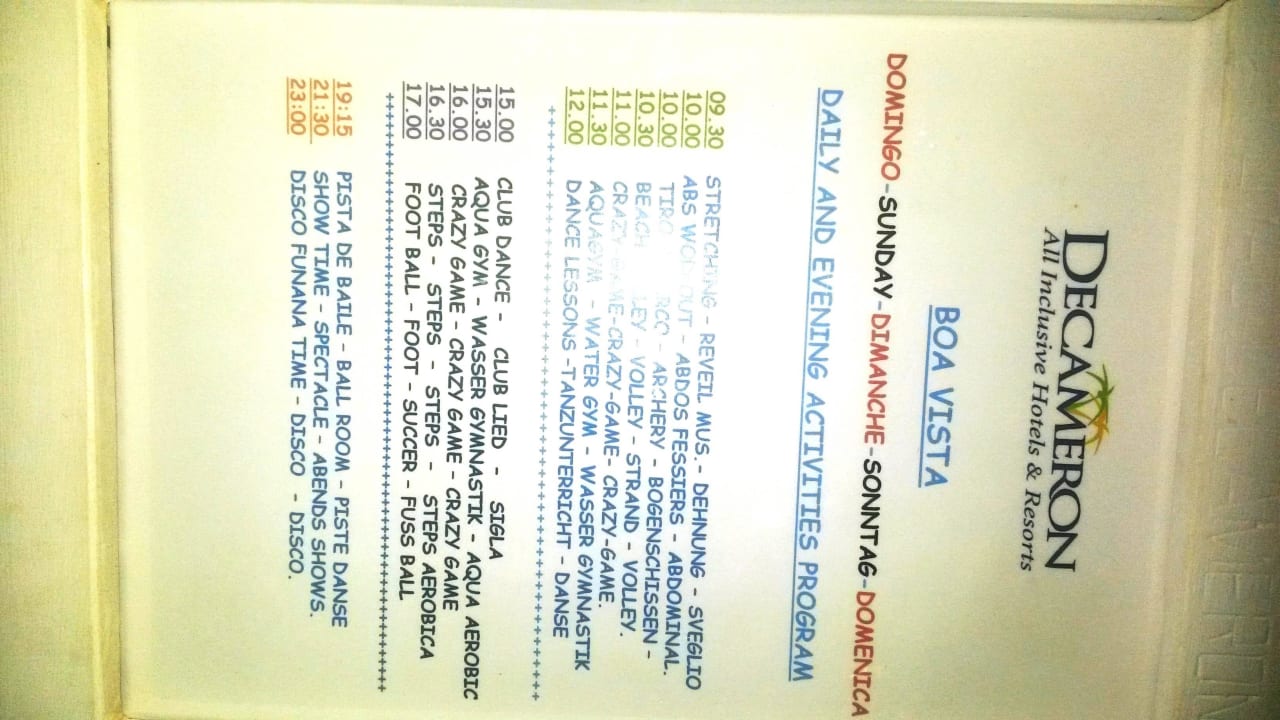 DECAMERON
All Inclusive Hotels & Resorts
BOA VISTA
DOMINGO-SUNDAY-DIMANCHE-SONNTAG-DOMENICA
DAILY AND EVENING ACTIVITIES PROGRAM
09.30 STRETCHING - REVEIL MUS.- DEHNUNG - SVEGLIO
10.00 ABS WORKOUT - ABDOS FESSIERS - ABDOMINAL.
10.00 TIRO - ARCHERY - BOGENSCHISSEN -
10.30 BEACH - VOLLEY - STRAND - VOLLEY.
11.00 CRAZY-GAME-CRAZY-GAME- CRAZY-GAME.
11.30 AQUAGYM - WATER GYM - WASSER GYMNASTIK
12.00 DANCE LESSONS -TANZUNTERRICHT - DANSE
++++++++++++++++++++++++++++++++++++++++++++++++
15.00 CLUB DANCE - CLUB LIED - SIGLA
15.30 AQUA GYM - WASSER GYMNASTIK - AQUA AEROBIC
16.00 CRAZY GAME - CRAZY GAME - CRAZY GAME
16.30 STEPS - STEPS - STEPS - STEPS AEROBICA
17.00 FOOT BALL - FOOT - SUCCER - FUSS BALL
++++++++++++++++++++++++++++++++++++++++++++++++
19:15 PISTA DE BAILE - BALL ROOM - PISTE DANSE
21:30 SHOW TIME - SPECTACLE - ABENDS SHOWS.
23:00 DISCO FUNANA TIME - DISCO - DISCO.